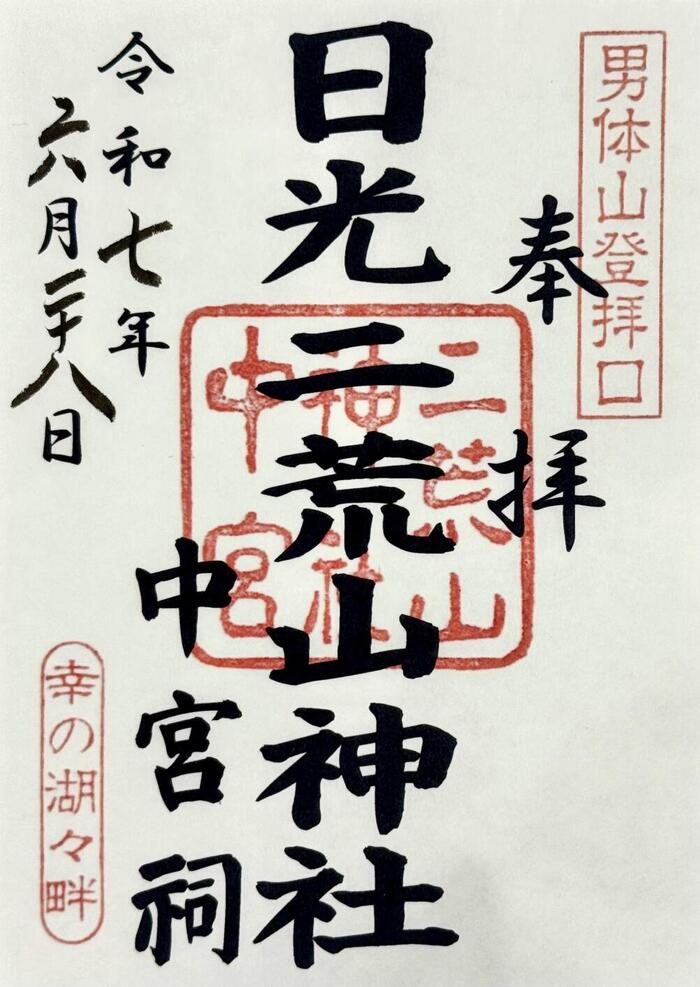 男体山登拝口
奉拝
日光二荒山神社
中宮祠
二荒山
神社
中宮
令和七年
六月二十八日
幸の湖々畔